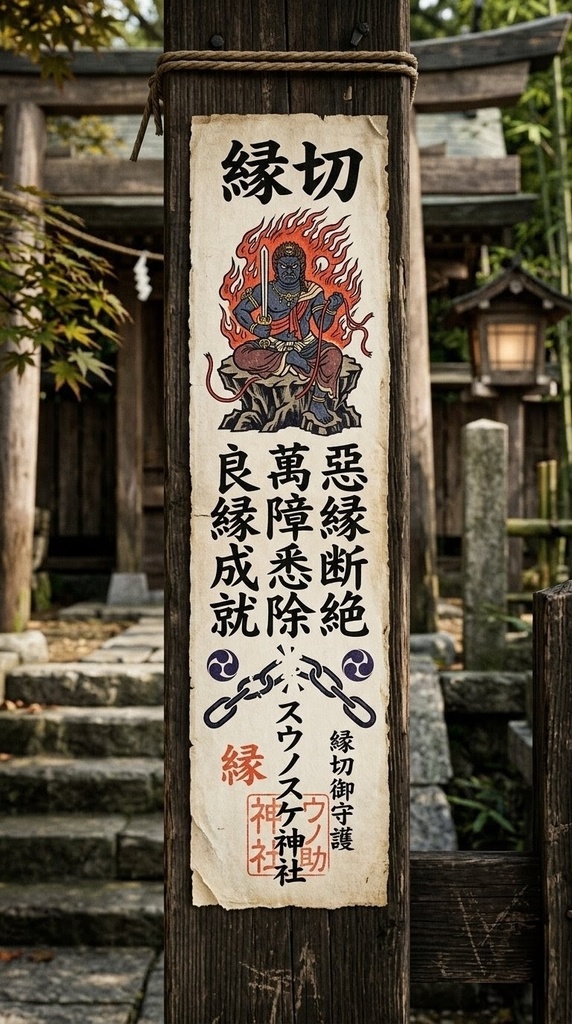 縁切
惡縁断絶
萬障悉除
良縁成就
縁切御守護
スウノスケ神社
縁
ウノ助
神社